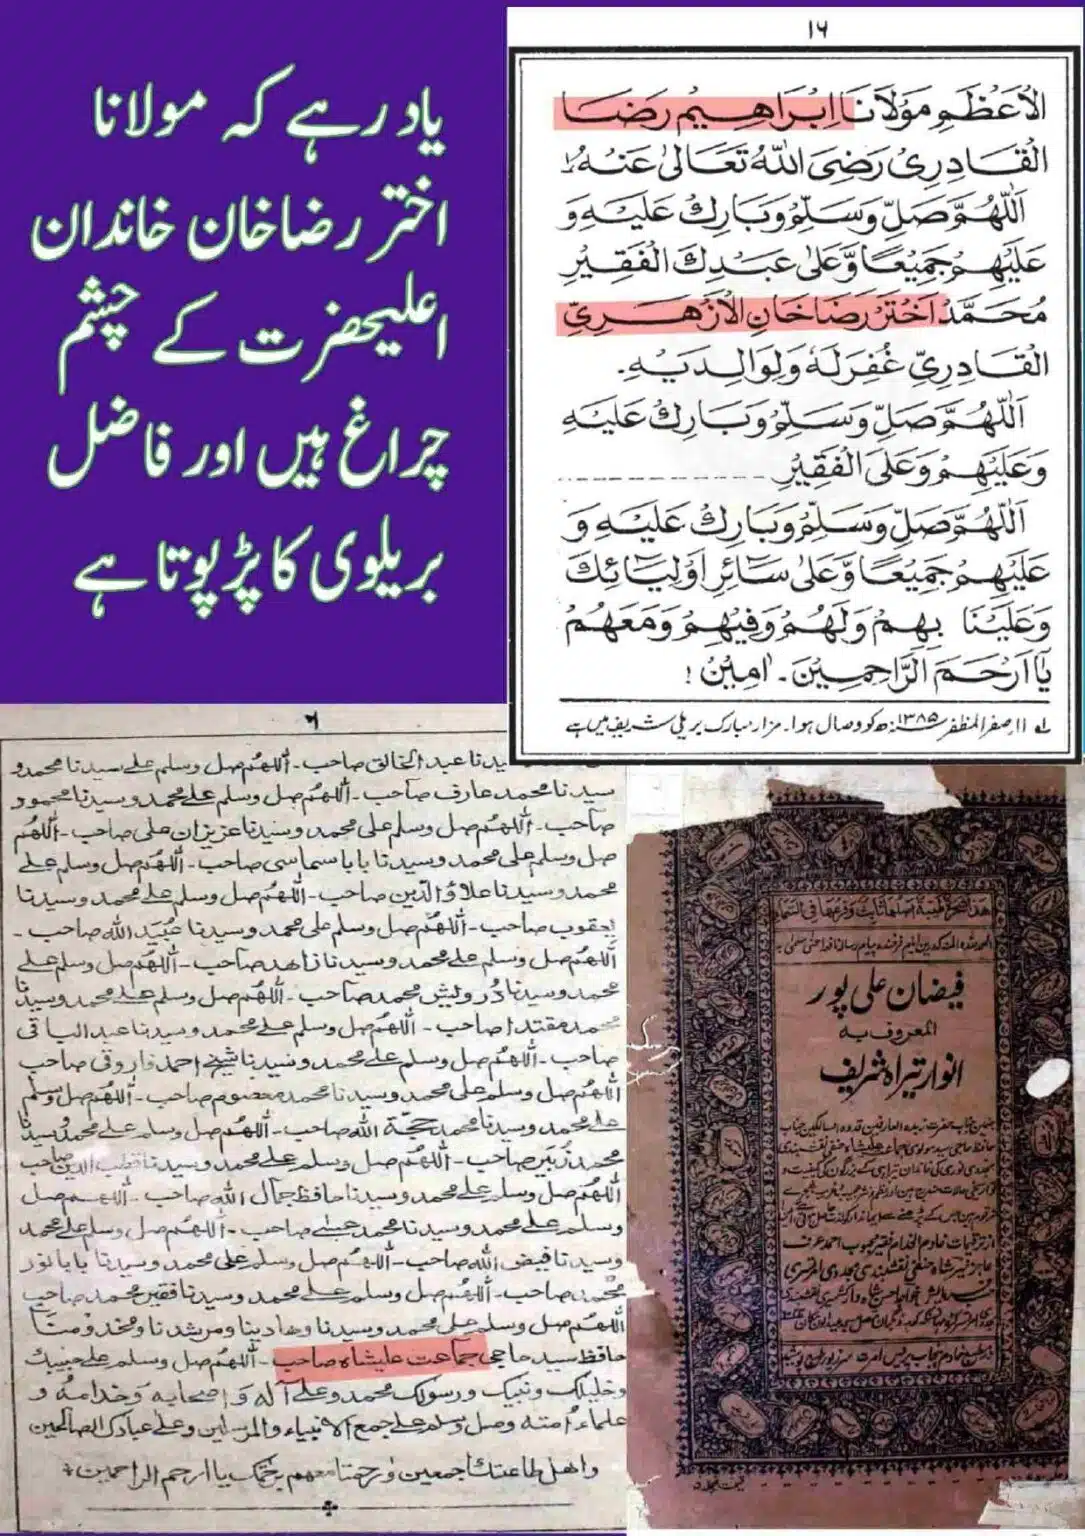 یاد رہے کہ مولانا
اختر رضاخان خاندان
اعلیحضرت کے چشم
چراغ ہیں اور فاضل
بریلوی کا پڑپوتا ہے
۱۶
الْاَعْظَمِ مَوْلَانَا اِبْرَاهِيْم رَضَا
الْقَادِرِىْ رَضِىَ اللّٰهُ تَعَالٰى عَنْهُ
اَللّٰهُمَّ صَلِّ وَسَلِّمْ وَبَارِكْ عَلَيْهِ وَ
عَلَيْهِمْ جَمِيْعًا وَّعَلٰى عَبْدِكَ الْفَقِيْرِ
مُحَمَّدْ اَخْتَرْ رَضَا خَانِ الْاَزْهَرِىِّ
الْقَادِرِىِّ غُفِرَلَهٗ وَلِوَالِدَيْهِ۔
اَللّٰهُمَّ صَلِّ وَسَلِّمْ وَبَارِكْ عَلَيْهِ
وَعَلَيْهِمْ وَعَلَى الْفَقِيْرِ
اَللّٰهُمَّ صَلِّ وَسَلِّمْ وَبَارِكْ عَلَيْهِ وَ
عَلَيْهِمْ جَمِيْعًا وَّعَلٰى سَائِرِ اَوْلِيَائِكَ
وَعَلَيْنَا بِهِمْ وَلَهُمْ وَفِيْهِمْ وَمَعَهُمْ
يَا اَرْحَمَ الرَّاحِمِيْنَ۔ اٰمِيْنْ!
۱ ۱۱ صفر المظفر ۱۳۸۵ھ کو وصال ہوا۔ مزار مبارک بریلی شریف میں ہے
۶
سیدنا عبد الخالق صاحب۔ اللهم صل وسلم علے سیدنا محمد و
سیدنا محمد عارف صاحب۔ اللهم صل وسلم علے محمد و سیدنا محمود
صاحب۔ اللهم صل وسلم علی محمد وسیدنا عزیزان علی صاحب۔ اللهم
صل وسلم علی محمد وسیدنا بابا سماسی صاحب۔ اللهم صل وسلم علے
محمد وسیدنا علاؤ الدین صاحب۔ اللهم صل وسلم علے محمد وسیدنا
یعقوب صاحب۔ اللهم صل وسلم علی محمد وسیدنا عبید الله صاحب۔
اللهم صل وسلم علے محمد وسیدنا زاهد صاحب۔ اللهم صل وسلم علے
محمد وسیدنا درویش محمد صاحب۔ اللهم صل وسلم علے محمد وسیدنا
محمد مقتدا صاحب۔ اللهم صل وسلم علے محمد وسیدنا عبد الباقی
صاحب۔ اللهم صل وسلم علے محمد وسیدنا شیخ احمد فاروقی صاحب
اللهم صل وسلم علی محمد وسیدنا محمد معصوم صاحب۔ اللهم صل وسلم
علے محمد وسیدنا محمد حجة الله صاحب۔ اللهم صل وسلم علے محمد وسیدنا
محمد زبیر صاحب۔ اللهم صل وسلم علے محمد وسیدنا قطب الدین صاحب
اللهم صل وسلم علے محمد وسیدنا حافظ جمال الله صاحب۔ اللهم صل
وسلم علے محمد وسیدنا محمد عیسے صاحب۔ اللهم صل وسلم علے محمد
وسیدنا فیض الله صاحب۔ اللهم صل وسلم علی محمد وسیدنا بابا نور
محمد صاحب۔ اللهم صل وسلم علے محمد وسیدنا فقیر محمد صاحب
اللهم صل وسلم علی محمد وسیدنا وهادینا ومرشدنا ومخدومنا
حافظ سید حاجی جماعت علیشاه صاحب۔ اللهم صل وسلم علے حبیبك
وخلیلك ونبیك ورسولك محمد وعلے آله واصحابه وخدامه و
علماء امته وصل وسلم علے جمع الانبیاء والمرسلین وعلے عبادك الصالحین
واهل طاعتك اجمعین وارحمنا معهم برحمتك یا ارحم الراحمین
فیضان علی پور
المعروف بہ
انوار تیراہ شریف